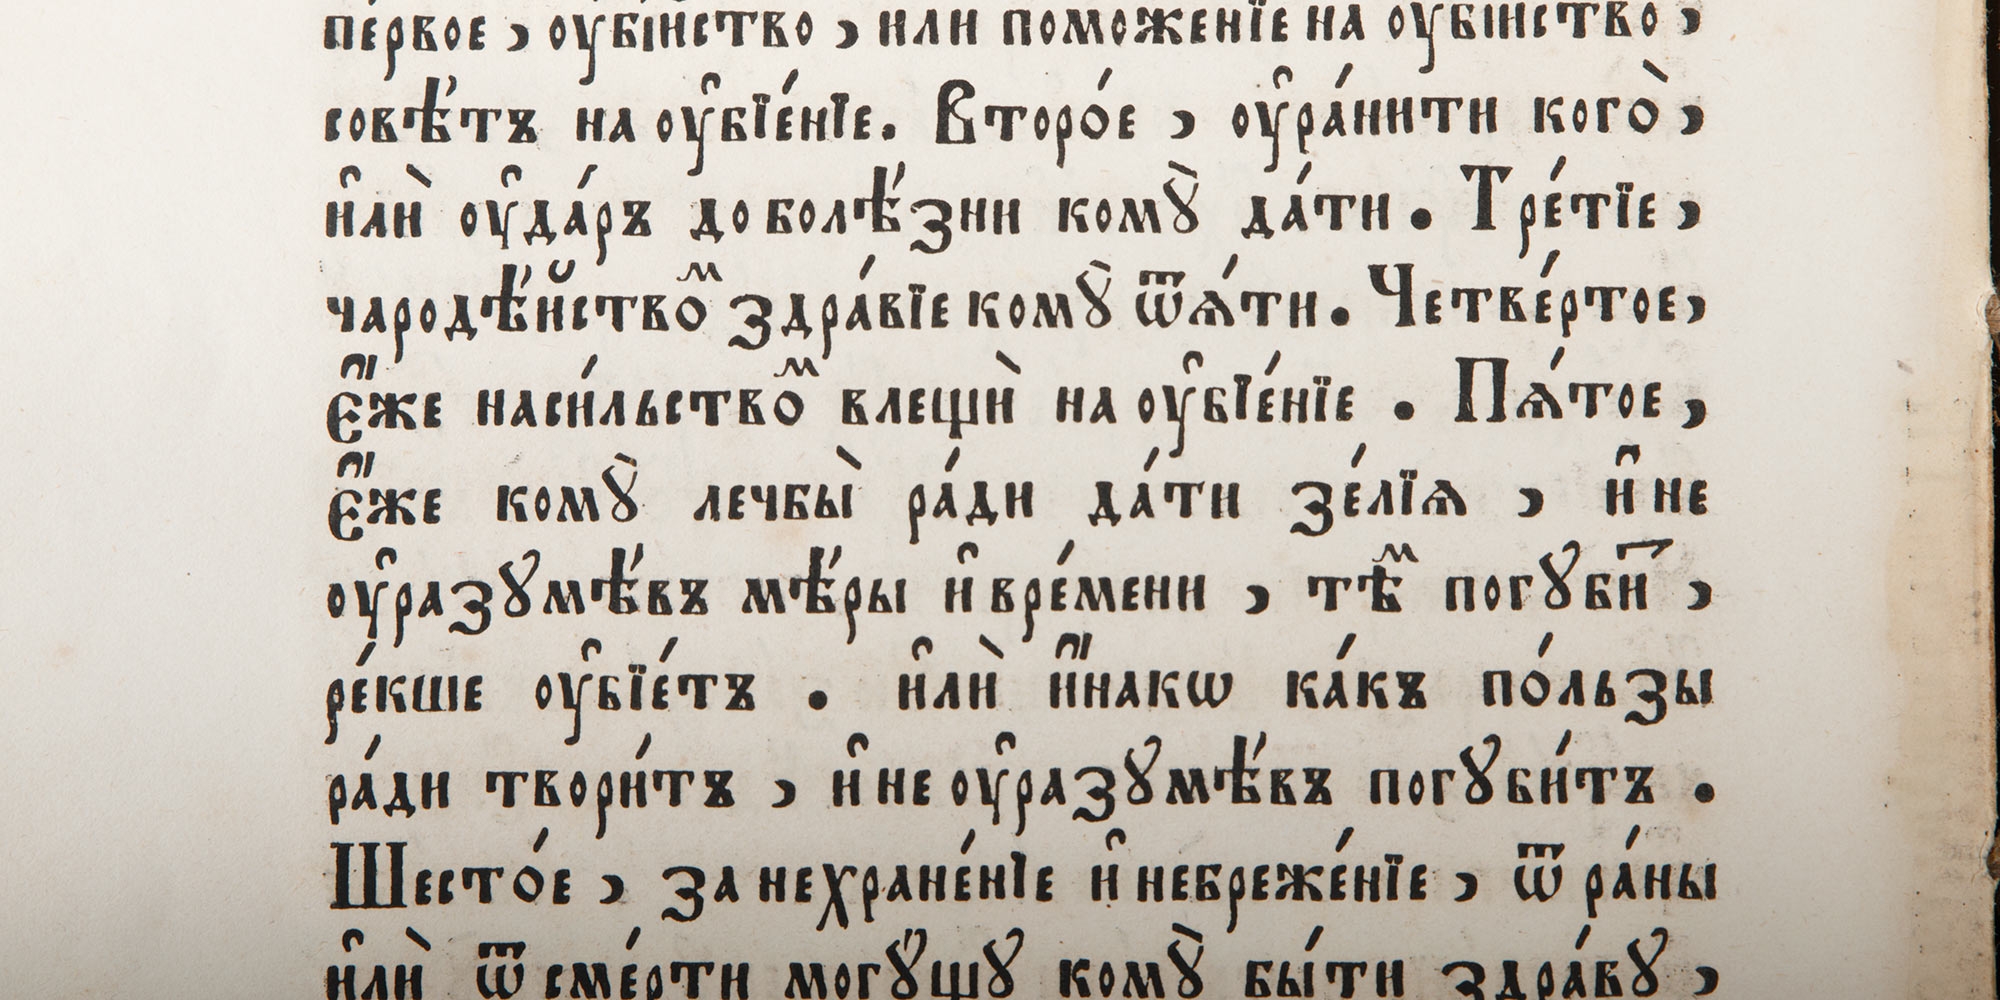 первое , ᲂубі́йство , и҆лѝ поможенїе на ᲂубїйство ,
совѣ́тъ на ᲂу҆бїе́нїе. Второ́е , ᲂу҆ра́нити кого̀ ,
и҆лѝ ᲂу҆да́ръ до болѣ́зни комꙋ̀ да́ти . Тре́тїе ,
чародѣ́йствоⷨ здра́вїе комꙋ̀ ѿѧ́ти. Четве́ртое,
є҆́же наси́льствоⷨ влещѝ на ᲂу҆бїе́нїе . Пѧ́тое ,
є҆́же комꙋ̀ лечбы̀ ра́ди да́ти зе́лїѧ , и҆ не
ᲂу҆разꙋмѣ́въ мѣ́ры и҆ вре́мени , тѣⷨ погꙋбиⷮ ,
ре́кше ᲂу҆бїе́тъ . и҆лѝ и҆́накѡ ка́къ по́льзы
ра́ди твори́тъ , и҆ не ᲂу҆разꙋмѣ́въ погꙋби́тъ .
Шесто́е , за нехране́нїе и҆ небреже́нїе , ѿ ра́ны
и҆лѝ ѿ сме́рти могꙋ́щꙋ комꙋ̀ бы́ти здра́вꙋ ,